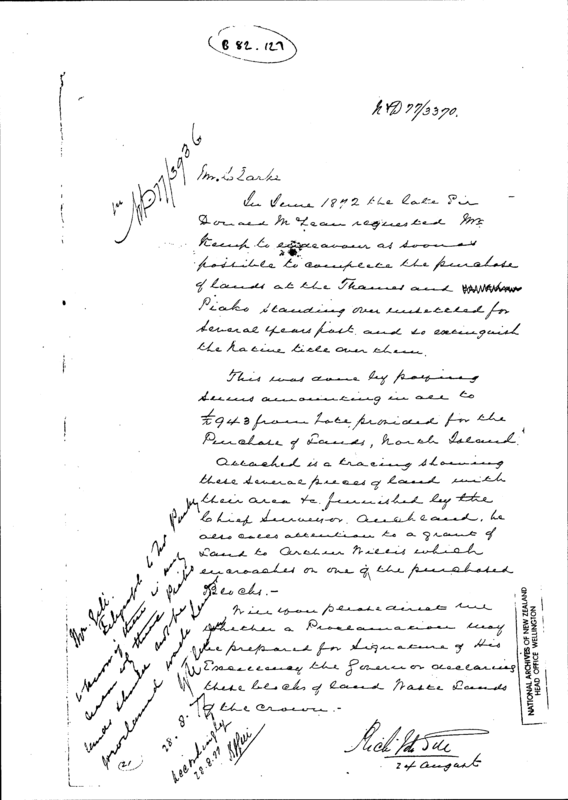 B 82. 127
N&D 77/3370.
see ND77/3936
Mr. Clarke
In June 1872 the late Sir
Donald McLean requested Mr
Kemp to endeavour as soon as
possible to complete the purchase
of lands at the Thames and
Piako standing over unsettled for
several years past and so extinguish
the Native title over them.
This was done by paying
sums amounting in all to
£943 from vote, provided for the
"Purchase of Lands, North Island"
Attached is a tracing showing
these several pieces of land with
their area &c. furnished by the
Chief Surveyor Auckland. he
also calls attention to a grant of
Land to Arthur Willis which
encroaches on one of the purchased
Blocks.-
Will you please direct me
whether a Proclamation may
be prepared for Signature of His
Excellency the Governor declaring
these blocks of land Waste Lands
of the Crown.-
24 August
Mr. Gill.
Telegraph to Mr
knowing there is any
these Piako
lands should not be
proclaimed waste lands
28. 8. 77
Accordingly
28.8.77
(2)
NATIONAL ARCHIVES OF NEW ZEALAND
HEAD OFFICE WELLINGTON